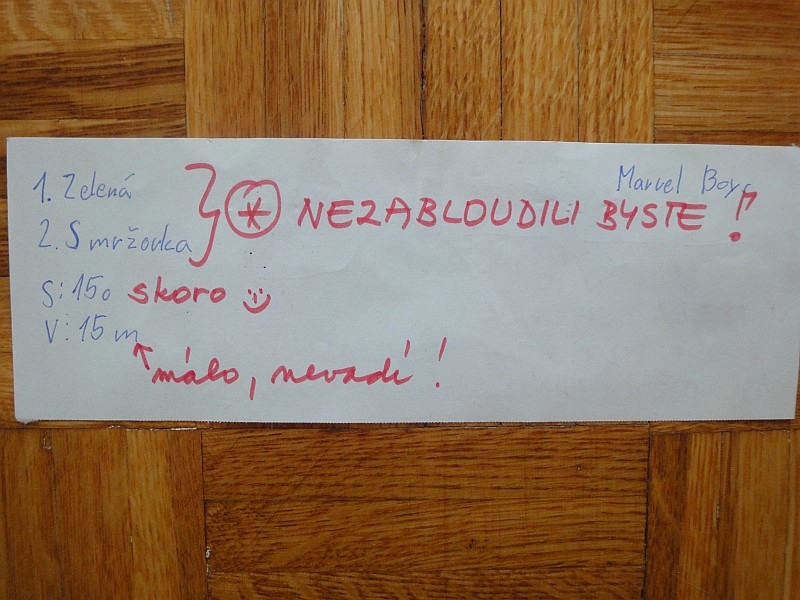 Marvel Boys
1. Zelená
* NEZABLOUDILI BYSTE !
2. Smržovka
S: 150 skoro
V: 15 m
málo, nevadí !